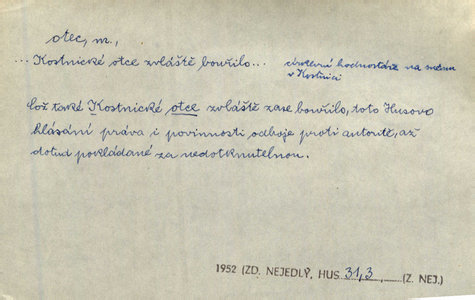 otec, m.,
... Kostnické otce zvláště bouřilo...
církevní hodnostáře na sněmu
v Kostnici
Což také Kostnické otce zvláště zase bouřilo, toto Husovo
hlásání práva i povinnosti odboje proti autoritě, až
dotud pokládané za nedotknutelnou.
1952 (ZD. NEJEDLÝ, HUS 31,3, (Z. NEJ.)